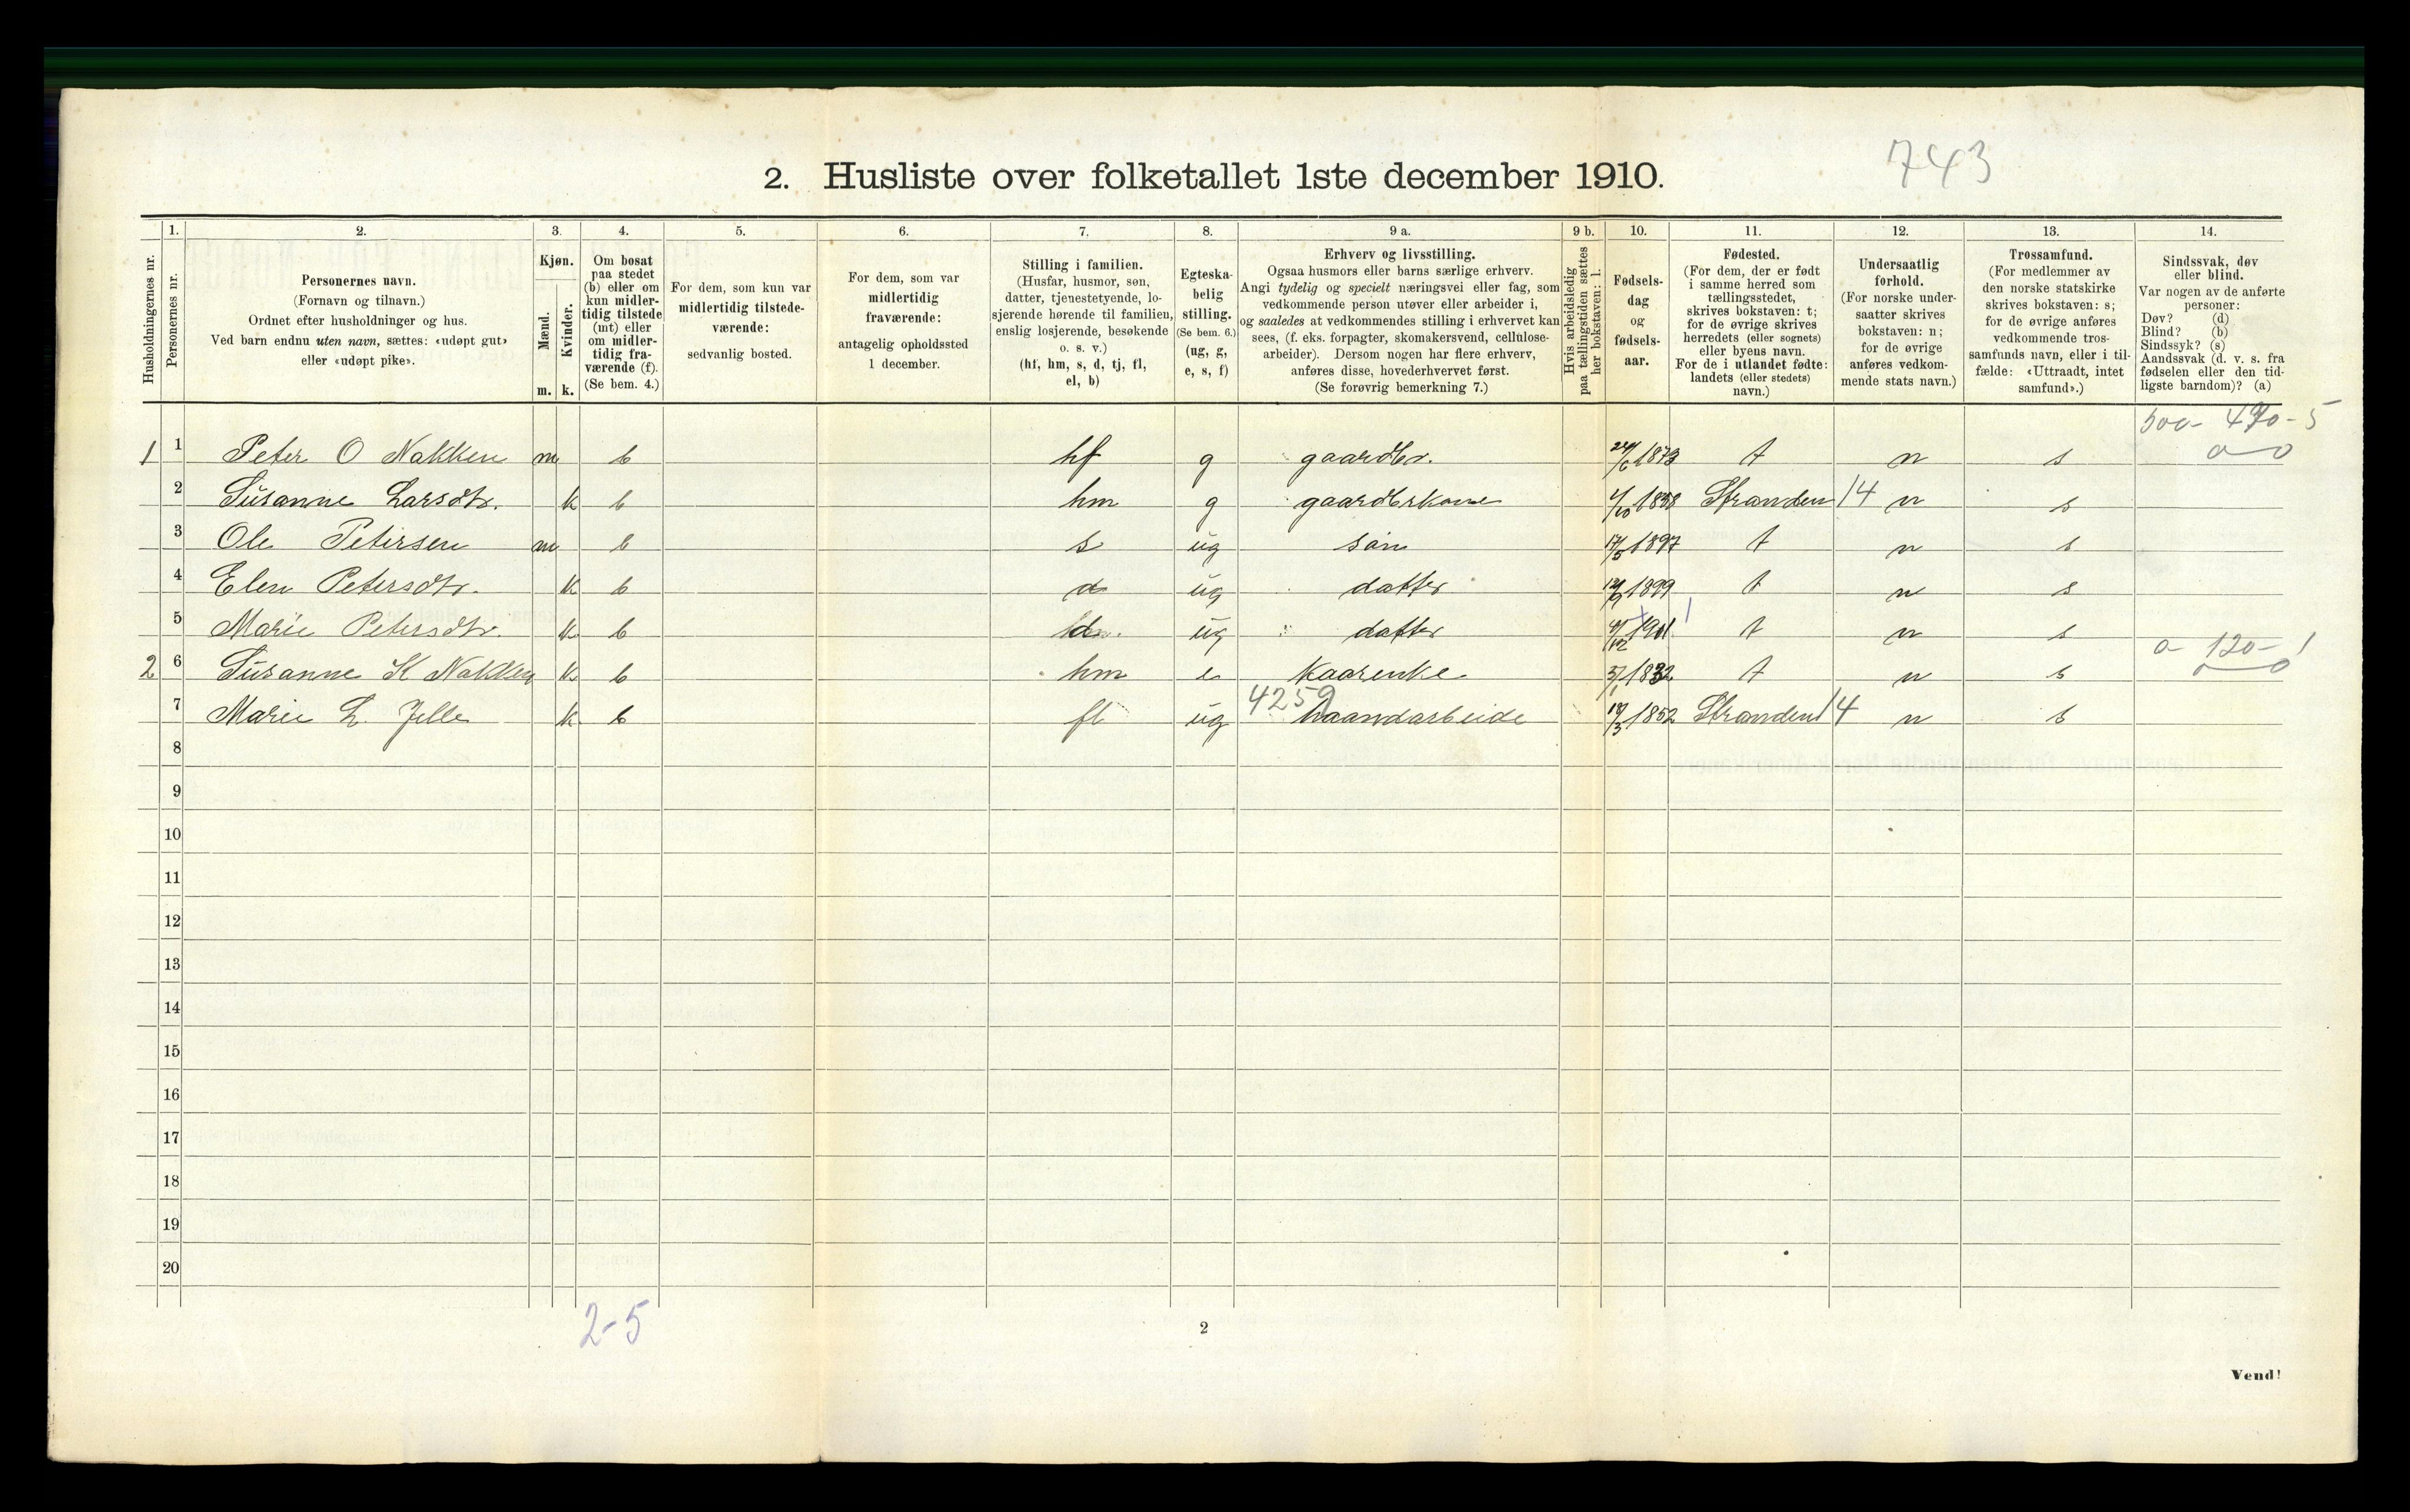 743
2. Husliste over folketallet 1ste december 1910.
Husholdningernes nr.
1. Personernes nr.
2. Personernes navn. (Fornavn og tilnavn.) Ordnet efter husholdninger og hus. Ved barn endnu uten navn, sættes: «udøpt gut» eller «udøpt pike».
3. Kjøn. Mænd. m. Kvinder. k.
4. Om bosat paa stedet (b) eller om kun midlertidig tilstede (mt) eller om midlertidig fraværende (f). (Se bem. 4.)
5. For dem, som kun var midlertidig tilstedeværende: sedvanlig bosted.
6. For dem, som var midlertidig fraværende: antagelig opholdssted 1 december.
7. Stilling i familien. (Husfar, husmor, søn, datter, tjenestetyende, losjerende hørende til familien, enslig losjerende, besøkende o. s. v.) (hf, hm, s, d, tj, fl, el, b)
8. Egteskabelig stilling. (Se bem. 6.) (ug, g, e, s, f)
9 a. Erhverv og livsstilling. Ogsaa husmors eller barns særlige erhverv. Angi tydelig og specielt næringsvei eller fag, som vedkommende person utøver eller arbeider i, og saaledes at vedkommendes stilling i erhvervet kan sees, (f. eks. forpagter, skomakersvend, cellulosearbeider). Dersom nogen har flere erhverv, anføres disse, hovederhvervet først. (Se forøvrig bemerkning 7.)
9 b. Hvis arbeidsledig paa tællingstiden sættes her bokstaven: l.
10. Fødselsdag og fødselsaar.
11. Fødested. (For dem, der er født i samme herred som tællingsstedet, skrives bokstaven: t; for de øvrige skrives herredets (eller sognets) eller byens navn. For de i utlandet fødte: landets (eller stedets) navn.)
12. Undersaatlig forhold. (For norske undersaatter skrives bokstaven: n; for de øvrige anføres vedkommende stats navn.)
13. Trossamfund. (For medlemmer av den norske statskirke skrives bokstaven: s; for de øvrige anføres vedkommende trossamfunds navn, eller i tilfælde: «Uttraadt, intet samfund».)
14. Sindssvak, døv eller blind. Var nogen av de anførte personer: Døv? (d) Blind? (b) Sindssyk? (s) Aandssvak (d. v. s. fra fødselen eller den tidligste barndom)? (a)
1 1 Peter O Nakken m b hf g gaardbr. 1873 t n s
2 Susanne Larsdtr. k b hm g gaardbrkone 1/10 1858 Stranden 14 n s
3 Ole Petersen m b s ug søn 17/5 1897 t n s
4 Elen Petersdtr. k b d ug datter 1899 t n s
5 Marie Petersdtr. k b d ug datter 1901 t n s
0- 120- 1
2 6 Susanne K Nakken k b hm e Kaarenke 3/1 1832 t n s
4259
7 Marie L. Jelle k b fl ug haandarbeide 19/3 1852 Stranden 14 n s
8
9
10
11
12
13
14
15
16
17
18
19
20
2-5
2
Vend!